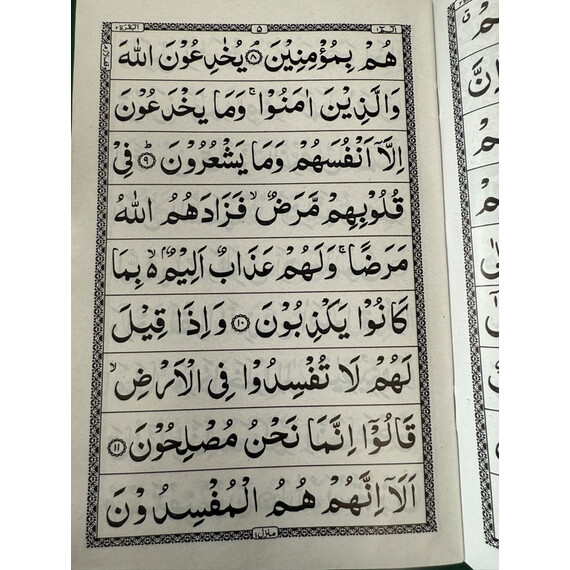 البقرة ٢ ٥ الٓمّٓ ١
هُمْ بِمُؤْمِنِيْنَ ۘ ٨ يُخٰدِعُوْنَ اللّٰهَ
وَالَّذِيْنَ اٰمَنُوْا ۚ وَمَا يَخْدَعُوْنَ
اِلَّاۤ اَنْفُسَهُمْ وَمَا يَشْعُرُوْنَ ؕ ٩ فِيْ
قُلُوْبِهِمْ مَّرَضٌ ۙ فَزَادَهُمُ اللّٰهُ
مَرَضًا ۚ وَلَهُمْ عَذَابٌ اَلِيْمٌ ۙ۬ بِمَا
كَانُوْا يَكْذِبُوْنَ ١٠ وَاِذَا قِيْلَ
لَهُمْ لَا تُفْسِدُوْا فِي الْاَرْضِ ۙ
قَالُوْۤا اِنَّمَا نَحْنُ مُصْلِحُوْنَ ١١
اَلَاۤ اِنَّهُمْ هُمُ الْمُفْسِدُوْنَ
منزل ١